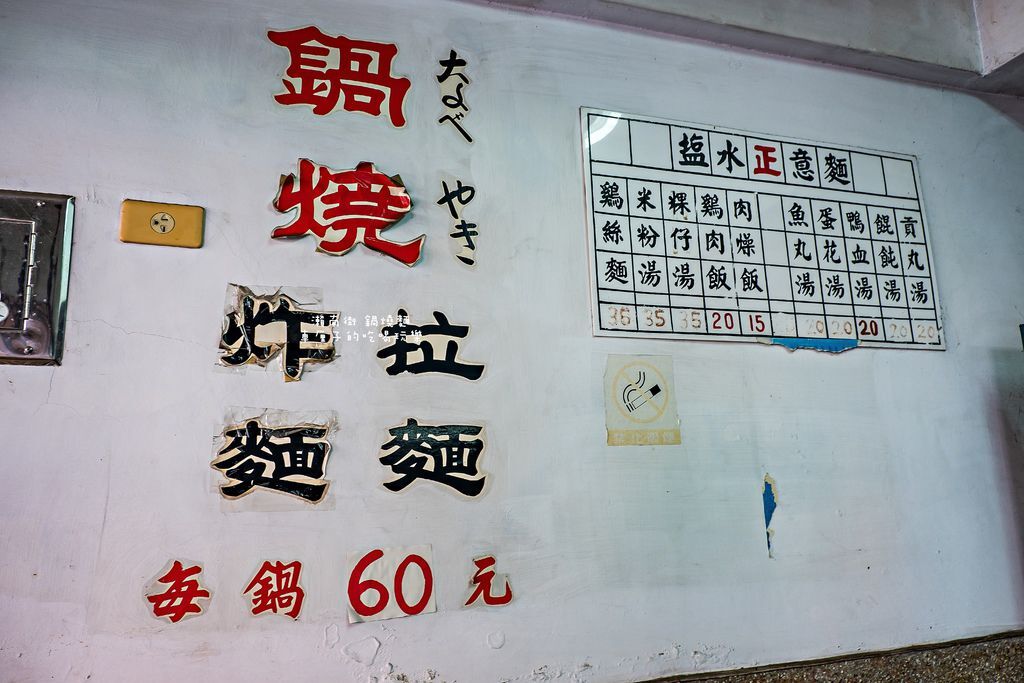 鍋燒
なべ
やき
炸麵
拉麵
每鍋60元
塩水正意麵
鷄絲麵 35
米粉湯 35
粿仔湯 35
鷄肉飯 20
肉燥飯 15
魚丸湯
蛋花湯 20
鴨血湯 20
餛飩湯 20
貢丸湯 20
鍋燒麵
的吃喝玩樂